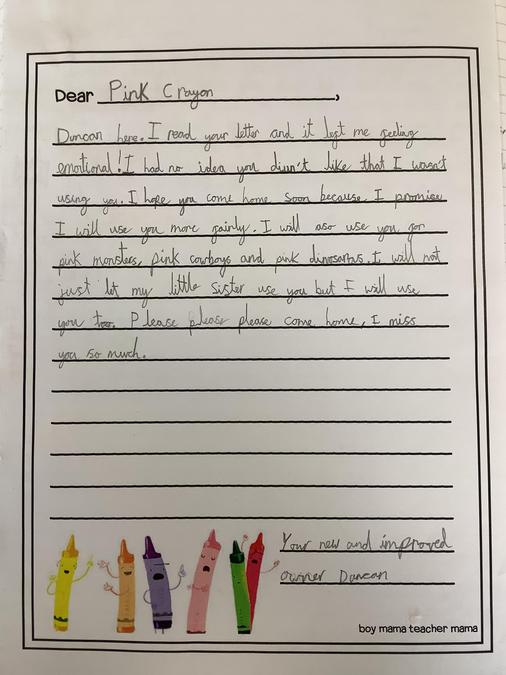 Dear Pink Crayon,
Duncan here. I read your letter and it left me feeling
emotional! I had no idea you diun't like that I wasn't
using you. I hope you come home soon because I promise
I will use you more fairly. I will aso use you for
pink monsters, pink cowboys and pink dinosarus. I will not
just let my little sister use you but I will use
you too. Please please please come home, I miss
you so much.
Your new and improved
owner Duncan
boy mama teacher mama